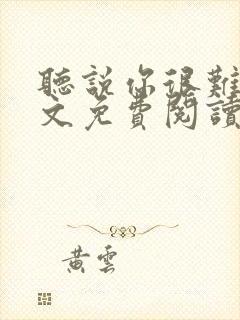 聽說你很難
文免費閱讀
黃雲